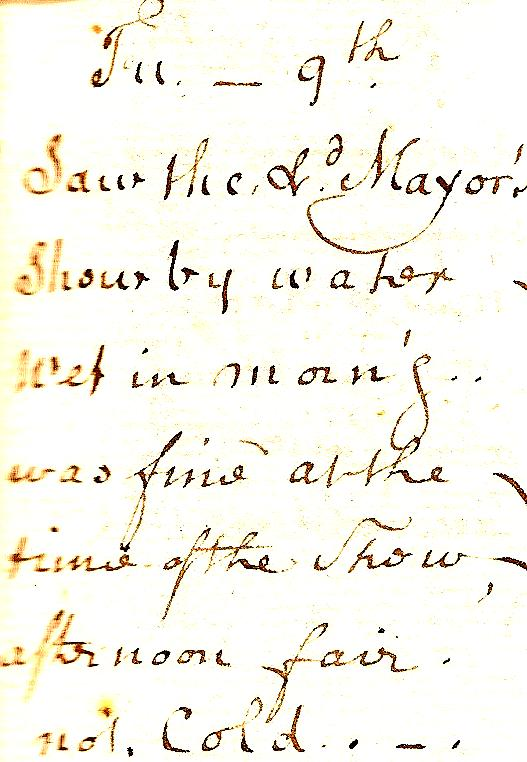 Tu. — 9th
Saw the Ld. Mayor's
Show by water -
Wet in morn'g..
was fine at the -
time of the Show, -
afternoon fair.
not. Cold.. - .